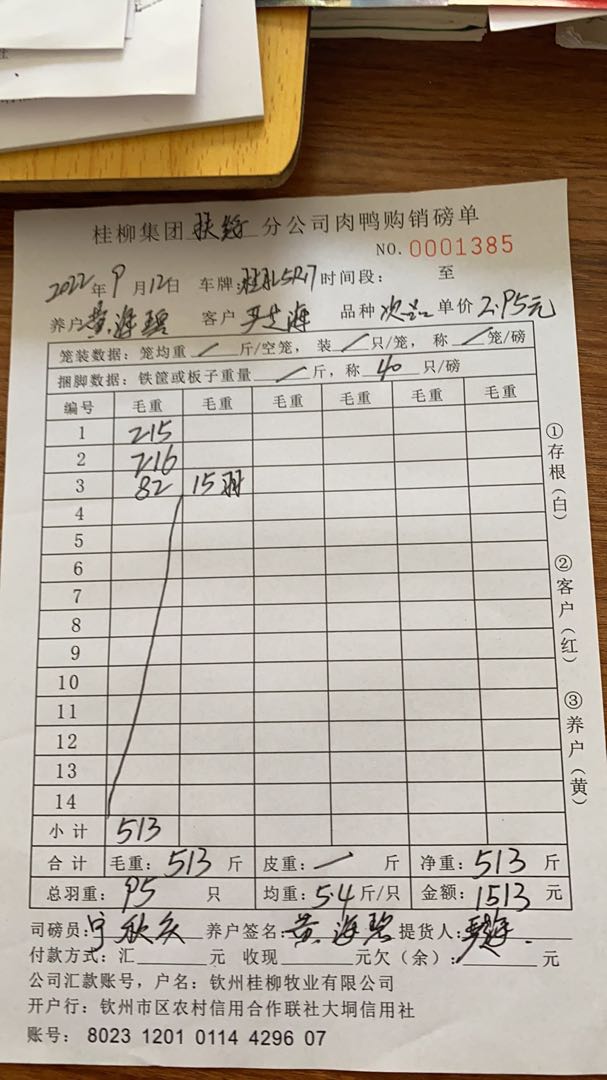 桂柳集团 扶绥 分公司肉鸭购销磅单
NO. 0001385
2022年9月12日 车牌: 时间段: 至
养户 黄海碧 客户 品种 次品 单价 2.95元
笼装数据: 笼均重 / 斤/空笼, 装 / 只/笼, 称 / 笼/磅
捆脚数据: 铁筐或板子重量 / 斤, 称 40 只/磅
编号 毛重 毛重 毛重 毛重 毛重 毛重
1 215
2 216
3 82 15羽
4
5
6
7
8
9
10
11
12
13
14
小计 513
合计 毛重: 513 斤 皮重: / 斤 净重: 513 斤
总羽重: 95 只 均重: 5.4 斤/只 金额: 1513 元
司磅员: 养户签名: 黄海碧 提货人:
付款方式: 汇 元 收现 元欠(余): 元
公司汇款账号, 户名: 钦州桂柳牧业有限公司
开户行: 钦州市区农村信用合作联社大垌信用社
账号: 8023 1201 0114 4296 07
①存根(白)
②客户(红)
③养户(黄)